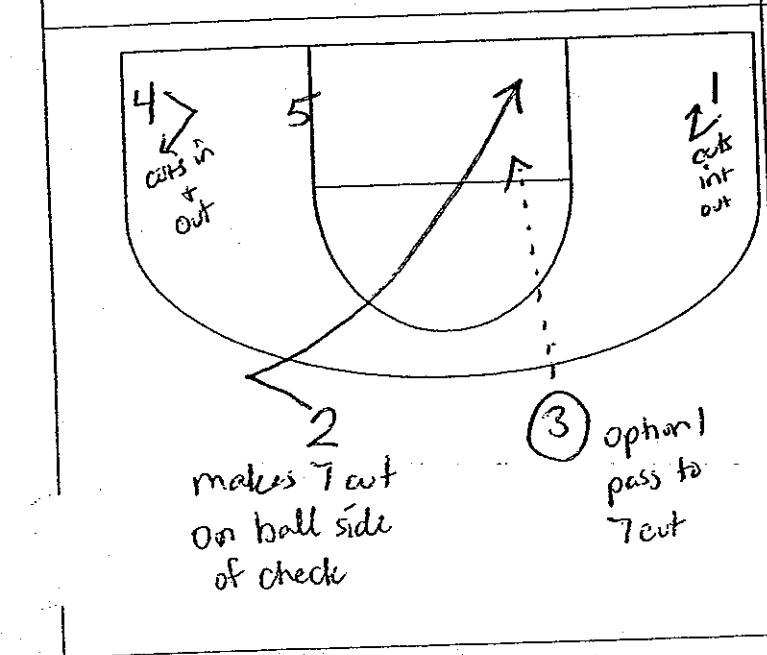 4
cuts in
+
out
5
1
cuts
in +
out
2
makes 7 cut
on ball side
of check
3
option 1
pass to
7 cut